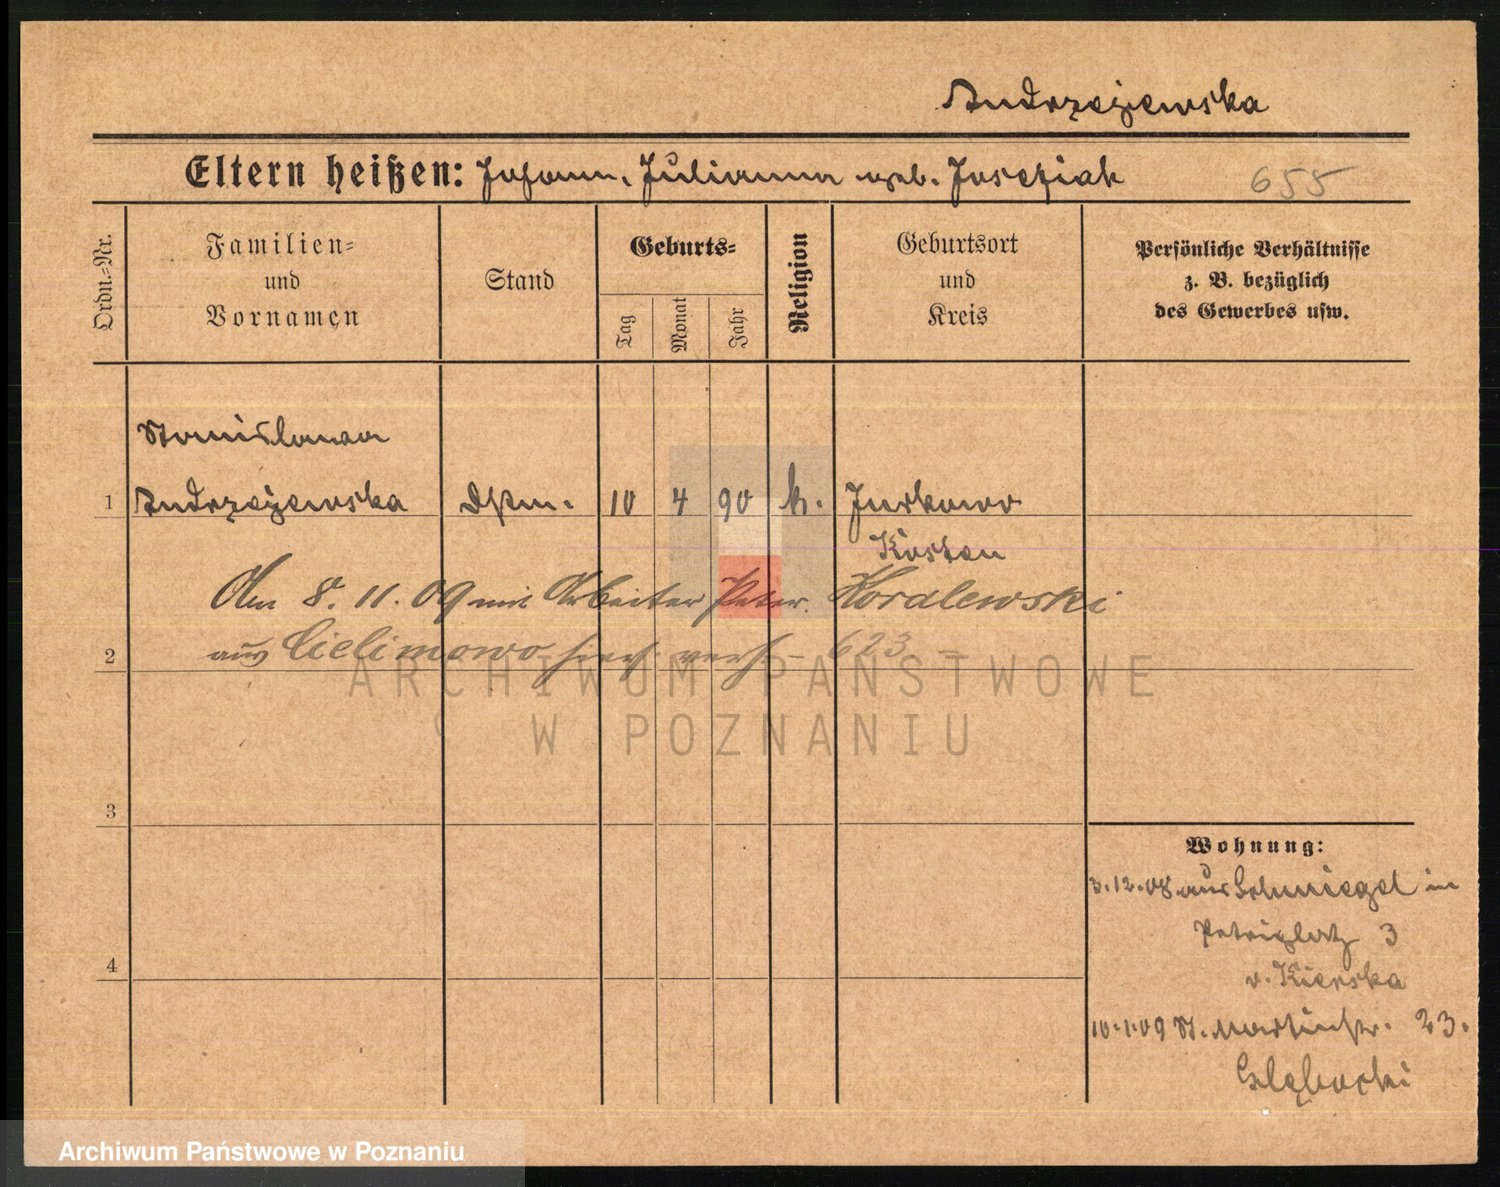 Andrzejewska
Eltern heißen: Johann, Julianna geb. Joseziak
655
Ordn.-Nr.
Familien-
und
Vornamen
Stand
Geburts-
Tag
Monat
Jahr
Religion
Geburtsort
und
Kreis
Persönliche Verhältnisse
z. B. bezüglich
des Gewerbes usw.
Stanislawa
1 Andrzejewska Dstm. 10 4 90 k. Jurkowo
Kosten
Am 8. 11. 09 mit Arbeiter Peter Koralewski
2 aus Cielimowo hier verh. 623
3
4
Wohnung:
3.12.08 aus Schmiegel in
Petriplatz 3
v. Kierska
10.1.09 St. Martinstr. 23.
ARCHIWUM PAŃSTWOWE
W POZNANIU
Archiwum Państwowe w Poznaniu